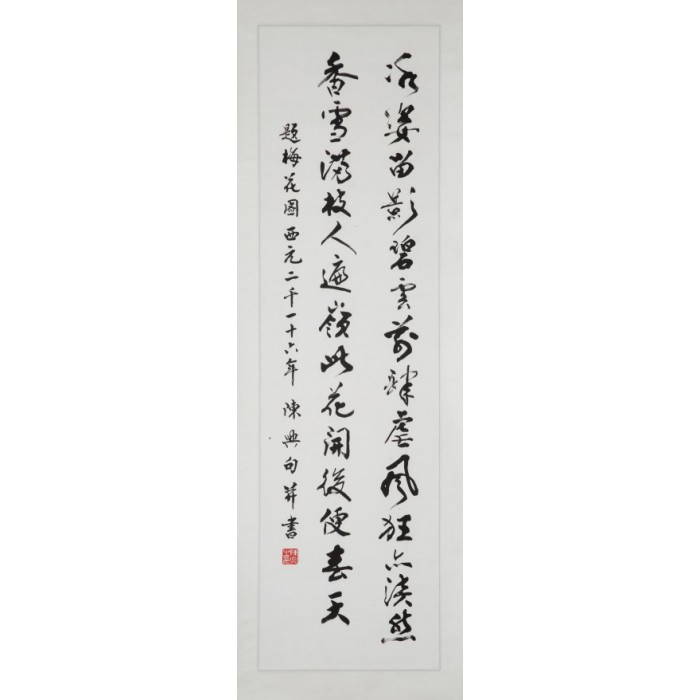 冰姿留影碧雲前肆虐風狂亦淡然
香雪滿枝人遍嶺此花開後便春天
題梅花圖西元二千一十六年 陳典句并書